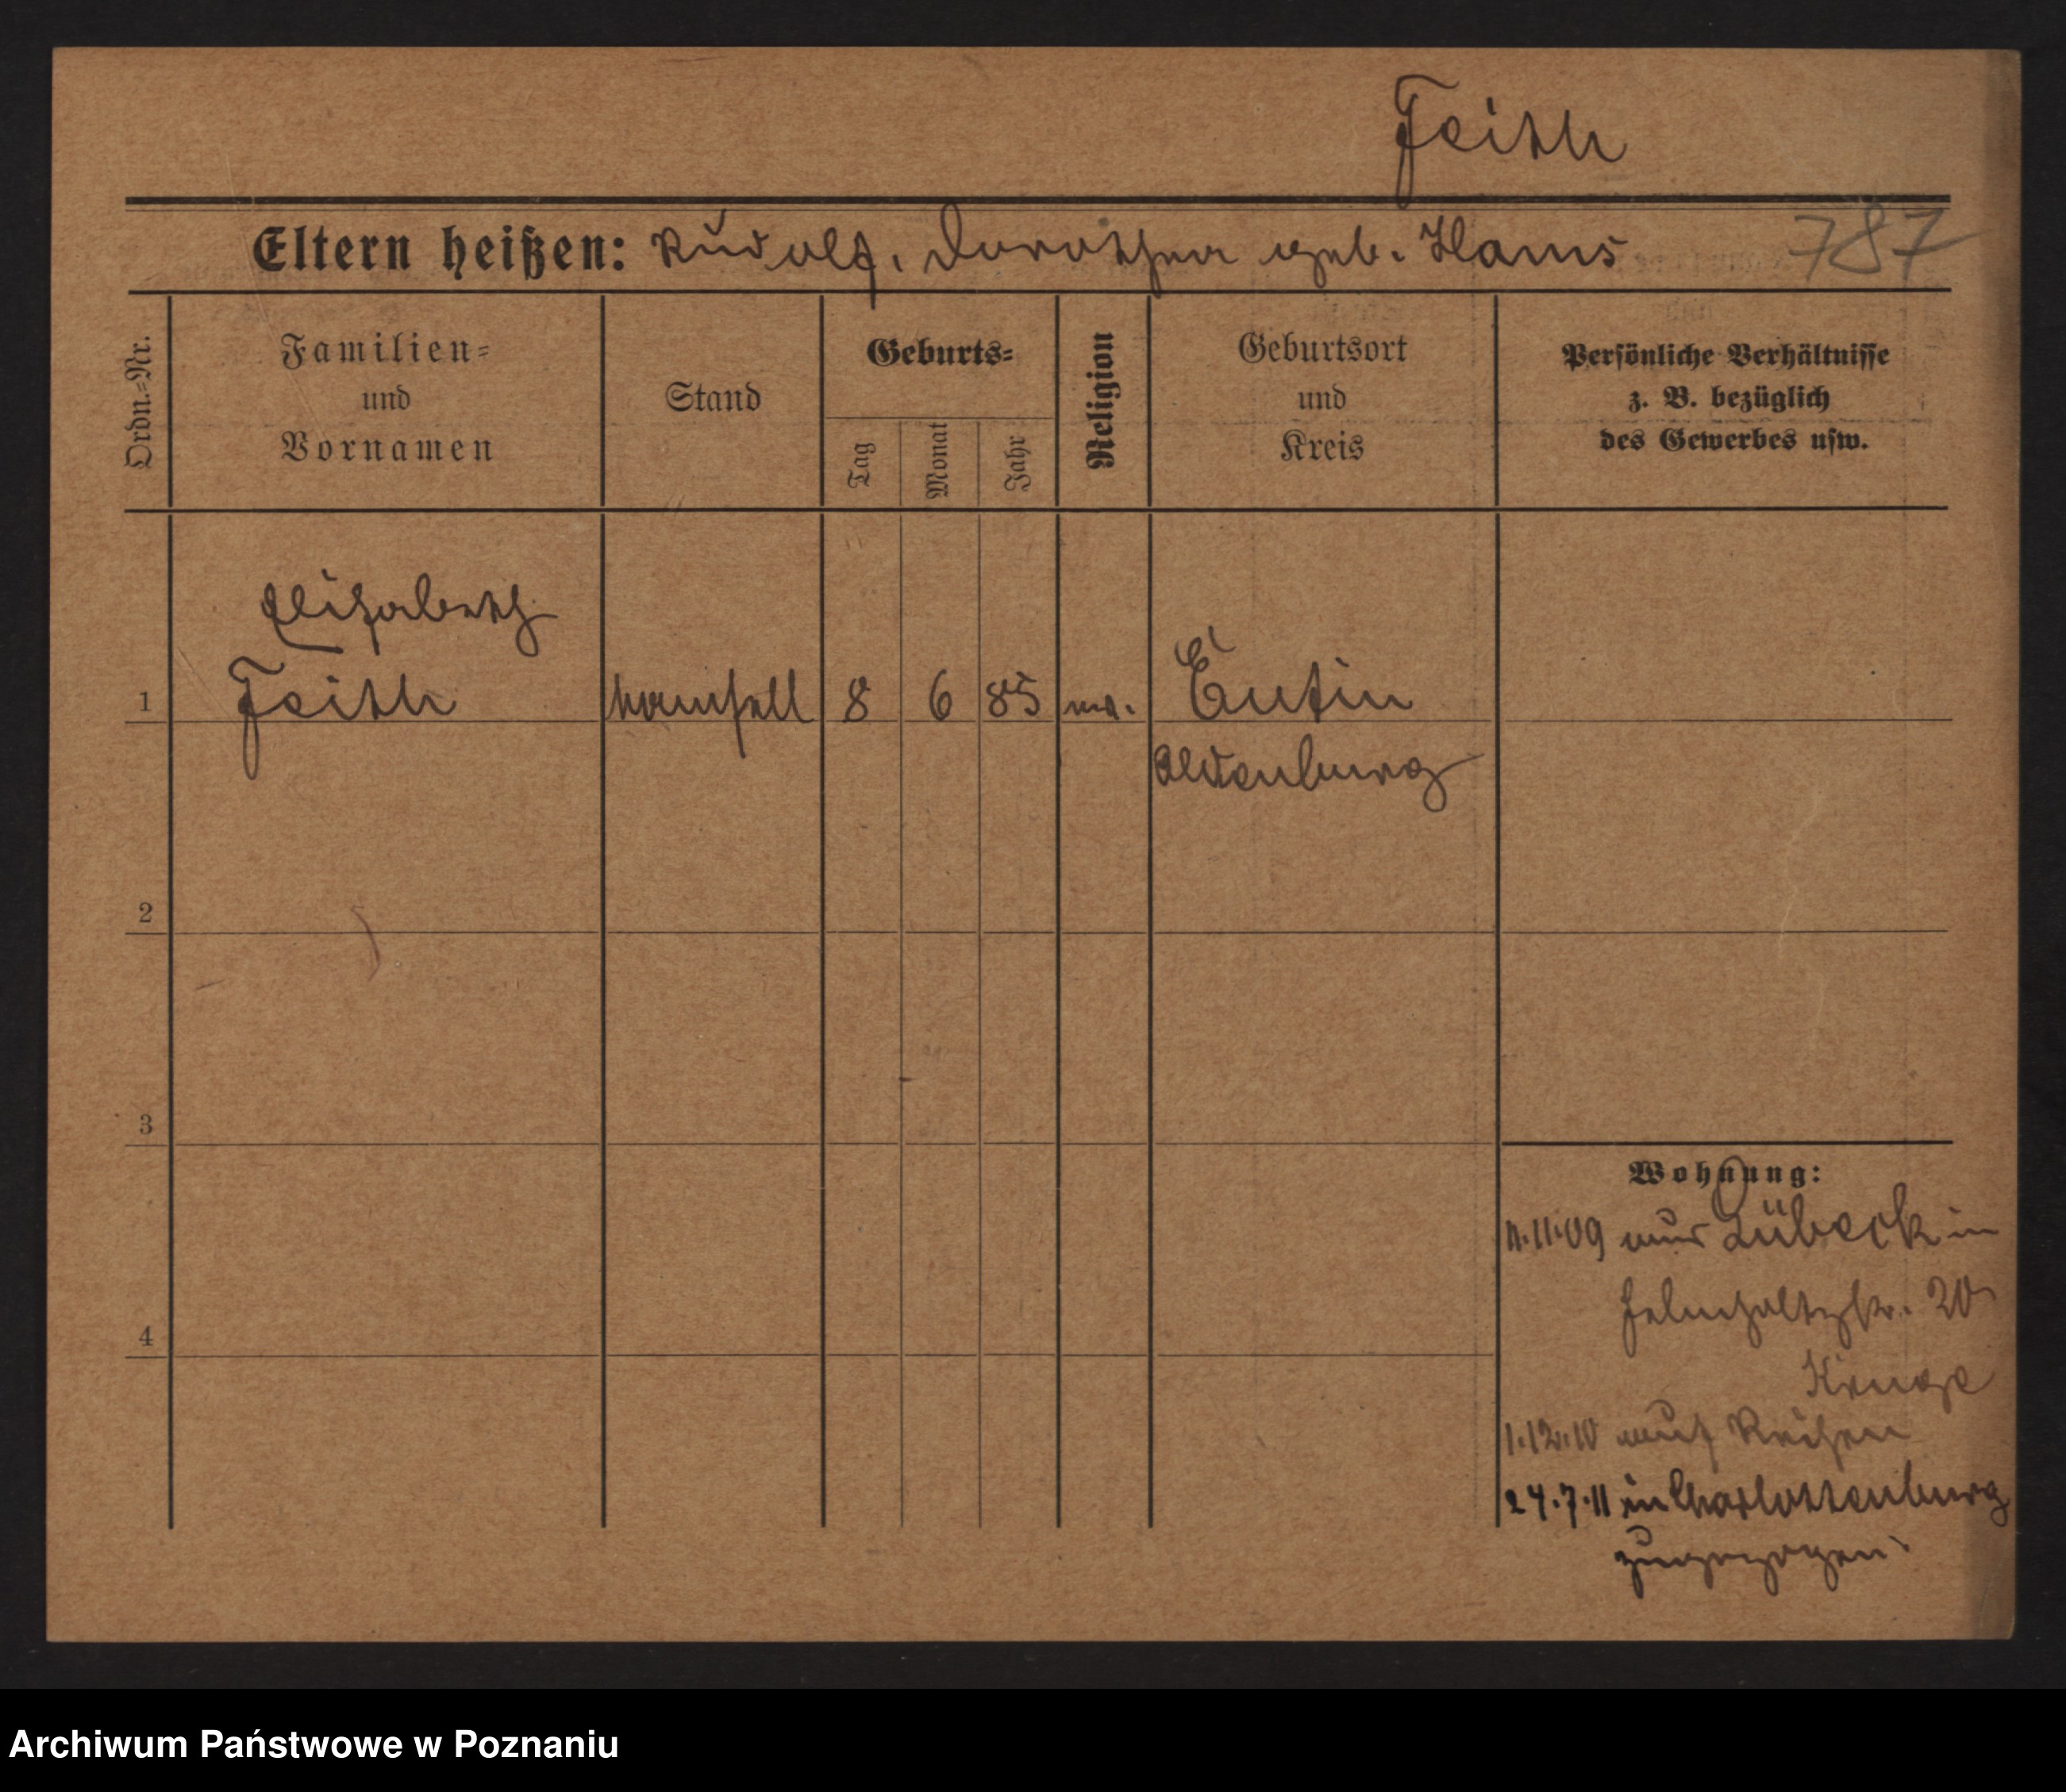 Feith
Eltern heißen: Rudolf, Dorothea geb. Hams
787
Ordn.-Nr.
Familien-
und
Vornamen
Stand
Geburts-
Tag
Monat
Jahr
Religion
Geburtsort
und
Kreis
Persönliche Verhältnisse
z. B. bezüglich
des Gewerbes usw.
Elisabeth
1 Feith 8 6 85 Eutin
Oldenburg
2
3
4
Wohnung:
11.09 aus Lübeck in
20
Kruge
1.12.10 auf Reisen
24.7.11 in Charlottenburg
zugezogen.
Archiwum Państwowe w Poznaniu